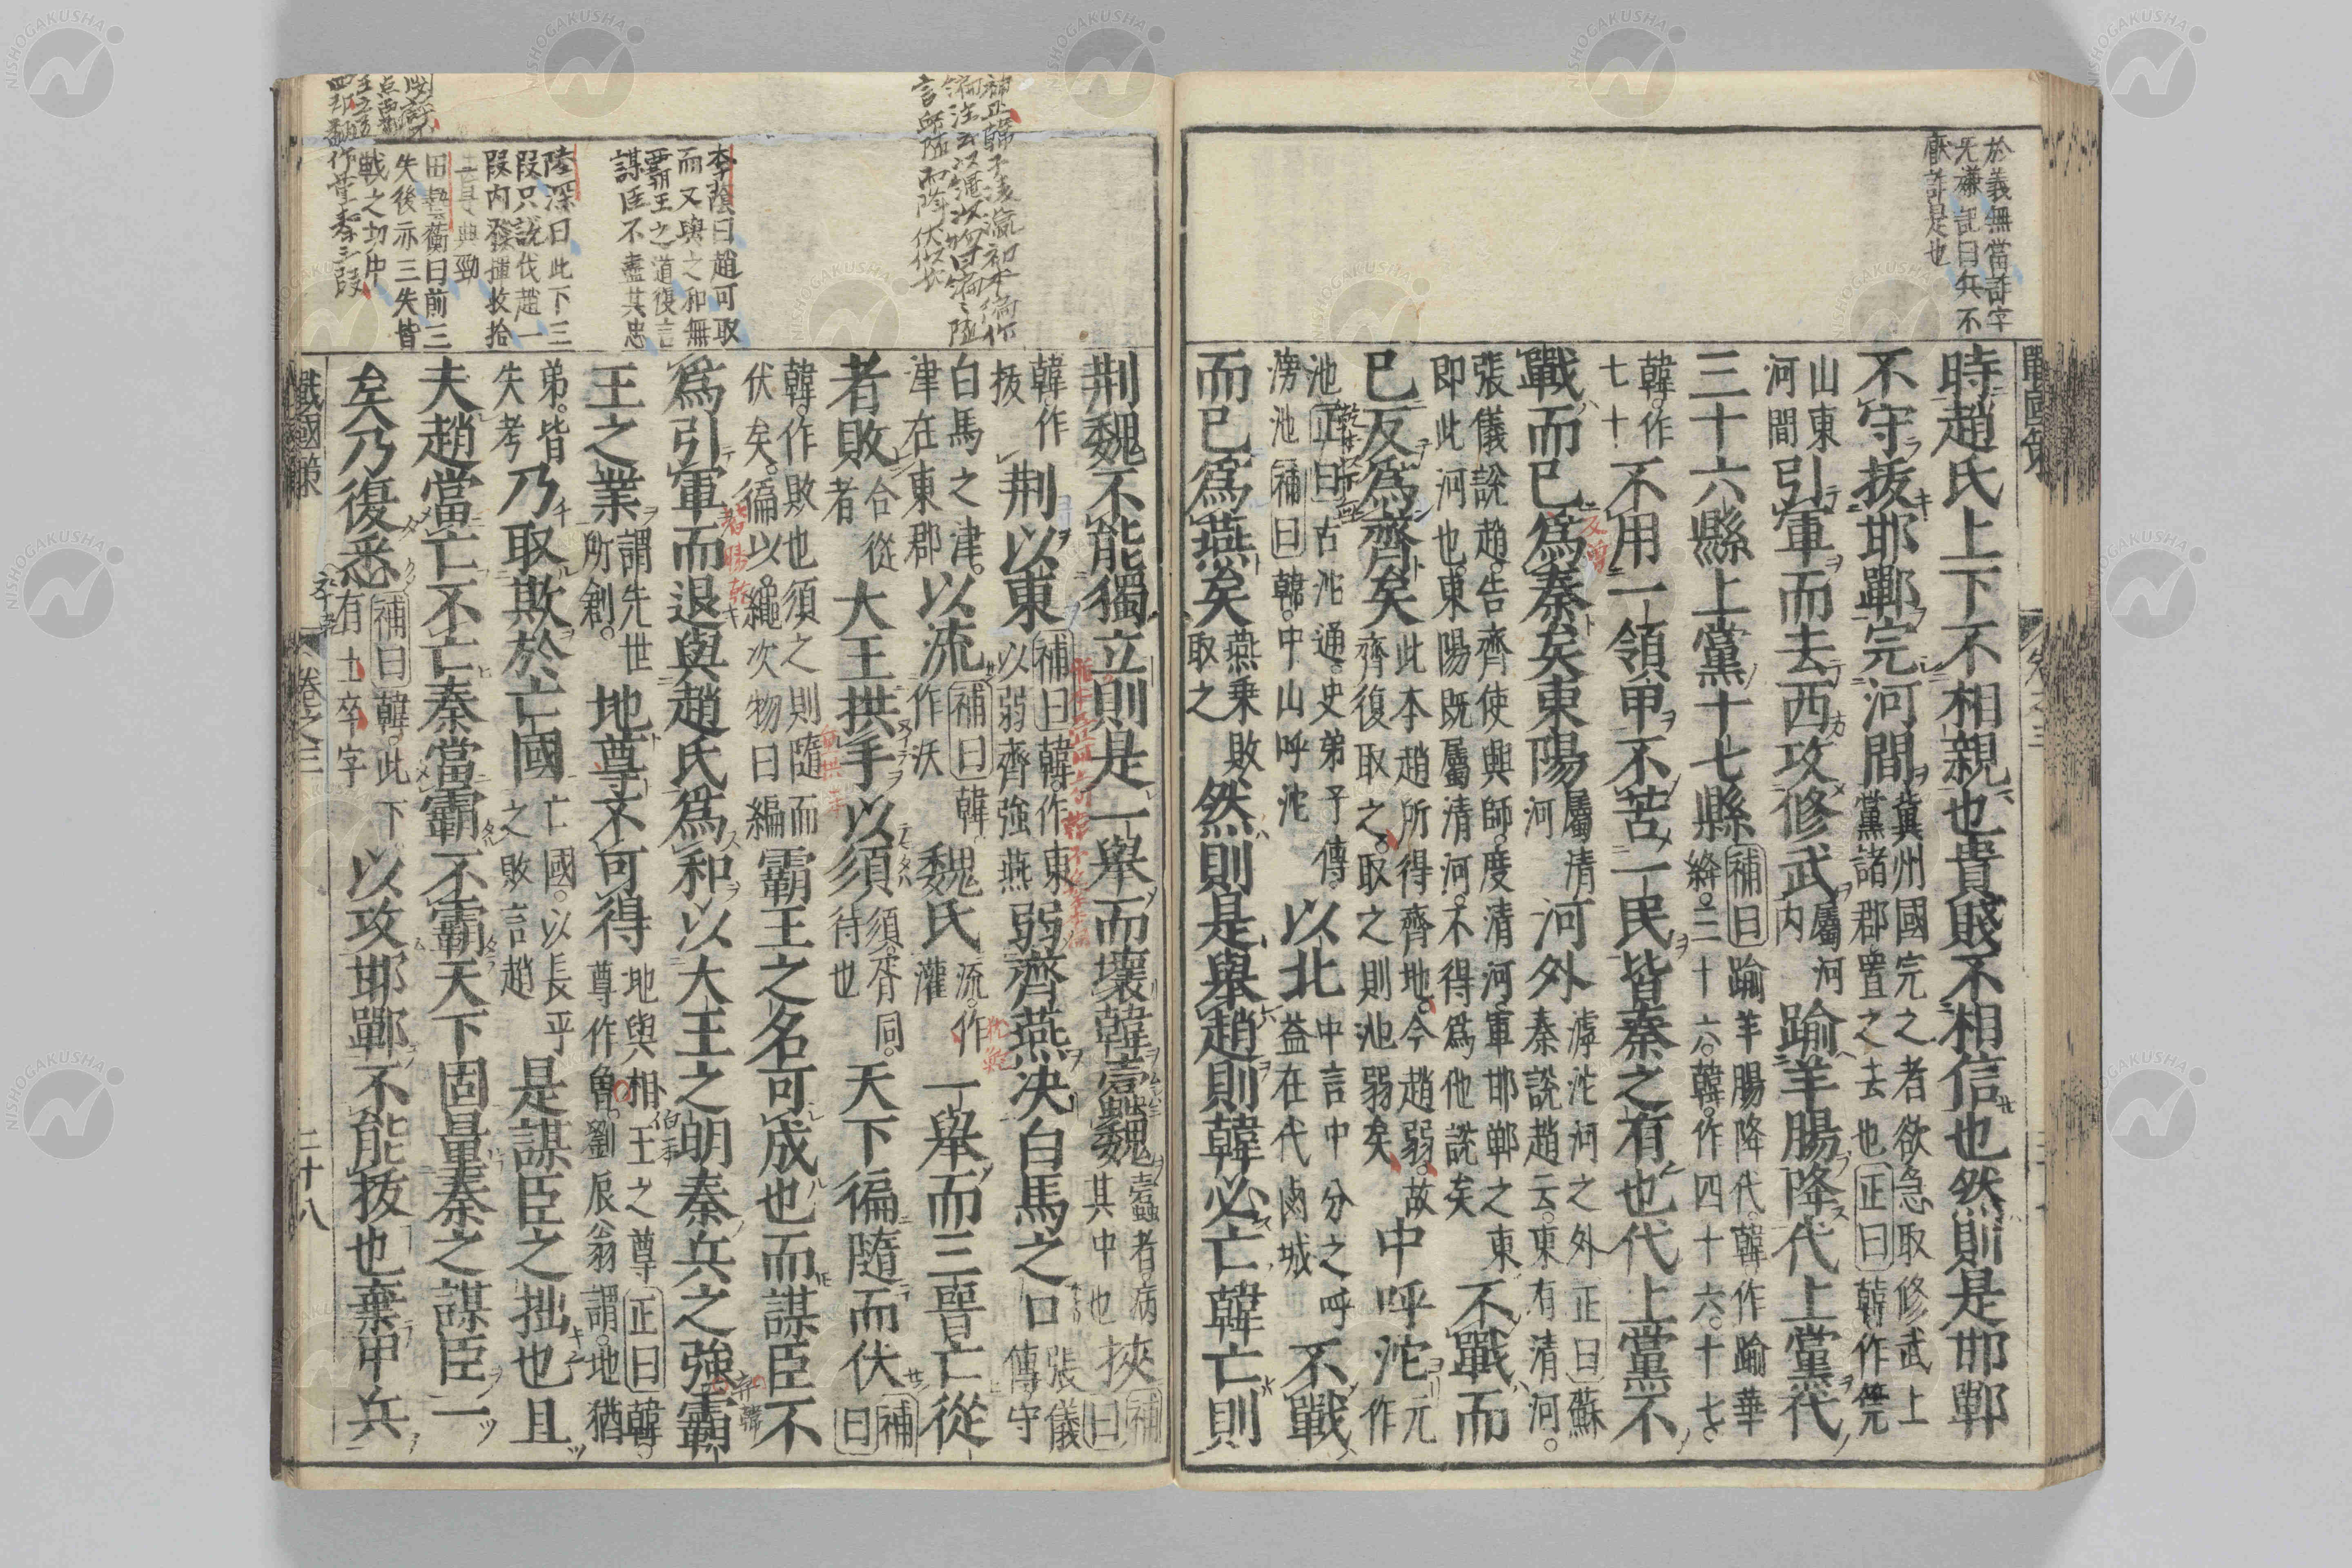 於義無當詐字
旡謙記曰兵不
厭詐是也
戰國策
卷之三
時趙氏上下不相親也貴賤不相信也然則是邯鄲
不守拔邯鄲完河間冀州國完之者欲急取修武上黨諸郡置之去也正曰韓作筦
山東河間引軍而去西攻修武屬河內踰羊腸降代上黨代
三十六縣上黨十七縣補曰踰羊腸降代韓作踰華絳三十六韓作四十六十七
韓作七十不用一領甲不苦一民皆秦之有也代上黨不
戰而已爲秦矣東陽屬清河河外滹沱河之外正曰蘇秦說趙云東有清河
張儀說趙告齊使興師度清河軍邯鄲之東即此河也東陽既屬清河不得爲他說矣不戰而
已反爲齊矣此本趙所得齊地今趙弱故齊復取之取之則池弱矣中呼沱元作
池正曰古沱池通史弟子傳滂池補曰韓中山呼沱以北中言中分之呼益在代鹵城不戰
而已爲燕矣燕乗敗取之然則是舉趙則韓必亡韓亡則
荆魏不能獨立則是一舉而壞韓蠹魏蠹者病其中也挾補曰
韓作拔荆以東補曰韓作東以弱齊強燕弱齊燕決白馬之口張儀傳守
白馬之津在東郡以流補曰韓作沃魏氏流作灌一舉而三晋亡從
者敗合從者大王拱手以須須胥同待也天下徧隨而伏補曰
韓作敗也須之則隨而伏矣徧以繩次物曰編霸王之名可成也而謀臣不
爲引軍而退與趙氏爲和以大王之明秦兵之強霸
王之業謂先世所創地尊不可得地與相王之尊正曰韓尊作魯劉辰翁謂地猶
弟皆失考乃取欺於亡國亡國以長乎之敗言趙是謀臣之拙也且
夫趙當亡不亡秦當霸不霸天下固量秦之謀臣一
矣乃復悉補曰韓此下有士卒字以攻邯鄲不能拔也棄甲兵
李蔭曰趙可取
而又與之和無
霸王之道復言
謀臣不盡其忠
陸深曰此下三
段只說伐趙一
段内發揮收拾
田藝蘅曰前三
失後亦三失皆
戰之切中
戰國策
卷之三
二十八